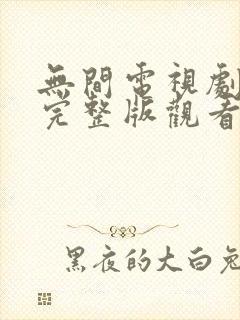 無間電視劇
完整版觀看
黑夜的大白兔